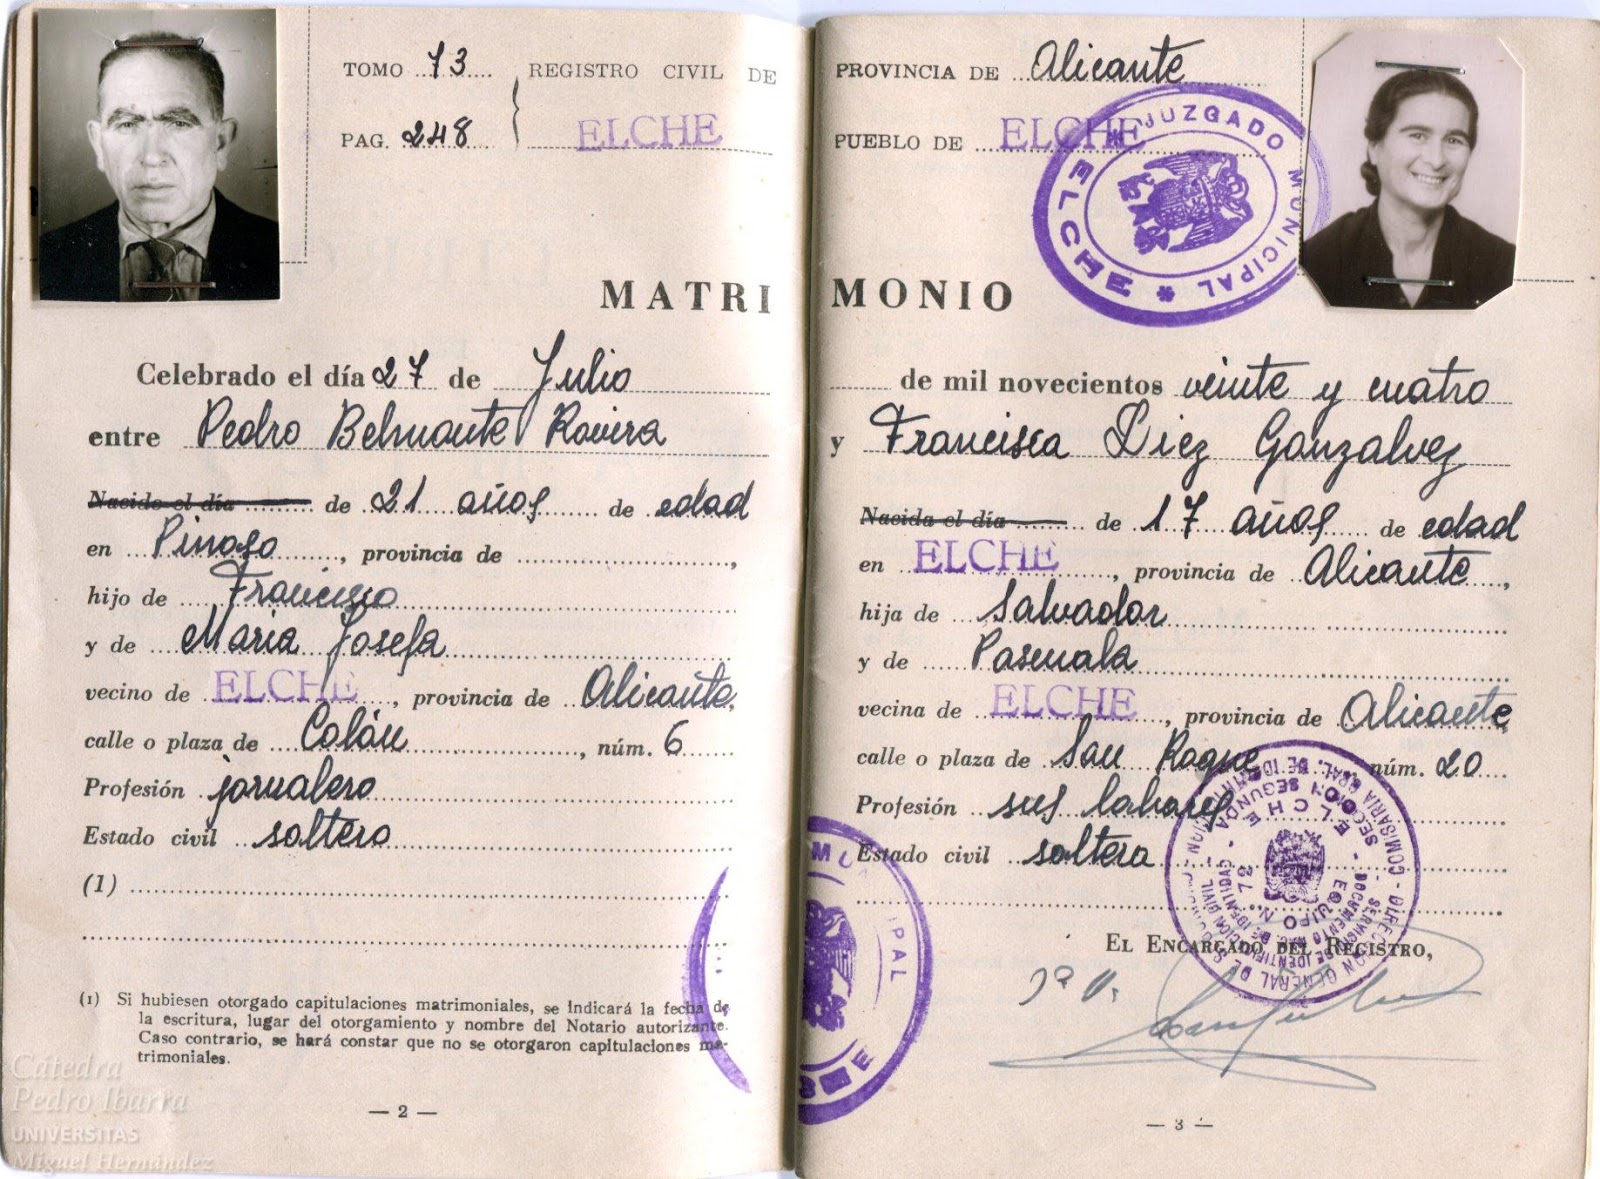 TOMO 73 REGISTRO CIVIL DE
PAG. 248 ELCHE
MATRI
Celebrado el día 27 de Julio
entre Pedro Belmonte Rovira
Nacido el día de 21 años de edad
en Pinoso, provincia de
hijo de Francisco
y de Maria Josefa
vecino de ELCHE, provincia de Alicante.
calle o plaza de Colón, núm. 6
Profesión jornalero
Estado civil soltero
(1)
(1) Si hubiesen otorgado capitulaciones matrimoniales, se indicará la fecha de
la escritura, lugar del otorgamiento y nombre del Notario autorizante.
Caso contrario, se hará constar que no se otorgaron capitulaciones ma-
trimoniales.
— 2 —
Cátedra
Pedro Ibarra
UNIVERSITAS
Miguel Hernández
PROVINCIA DE Alicante
PUEBLO DE ELCHE
JUZGADO MUNICIPAL * ELCHE *
MONIO
de mil novecientos veinte y cuatro
y Francisca Diez Gonzalvez
Nacida el día de 17 años de edad
en ELCHE, provincia de Alicante,
hija de Salvador
y de Pascuala
vecina de ELCHE, provincia de Alicante
calle o plaza de San Roque núm. 20
Profesión sus labores
Estado civil soltera
EL ENCARGADO DEL REGISTRO,
DIRECCION GENERAL DE
EQUIPO N.º 72
ELCHE
— 3 —